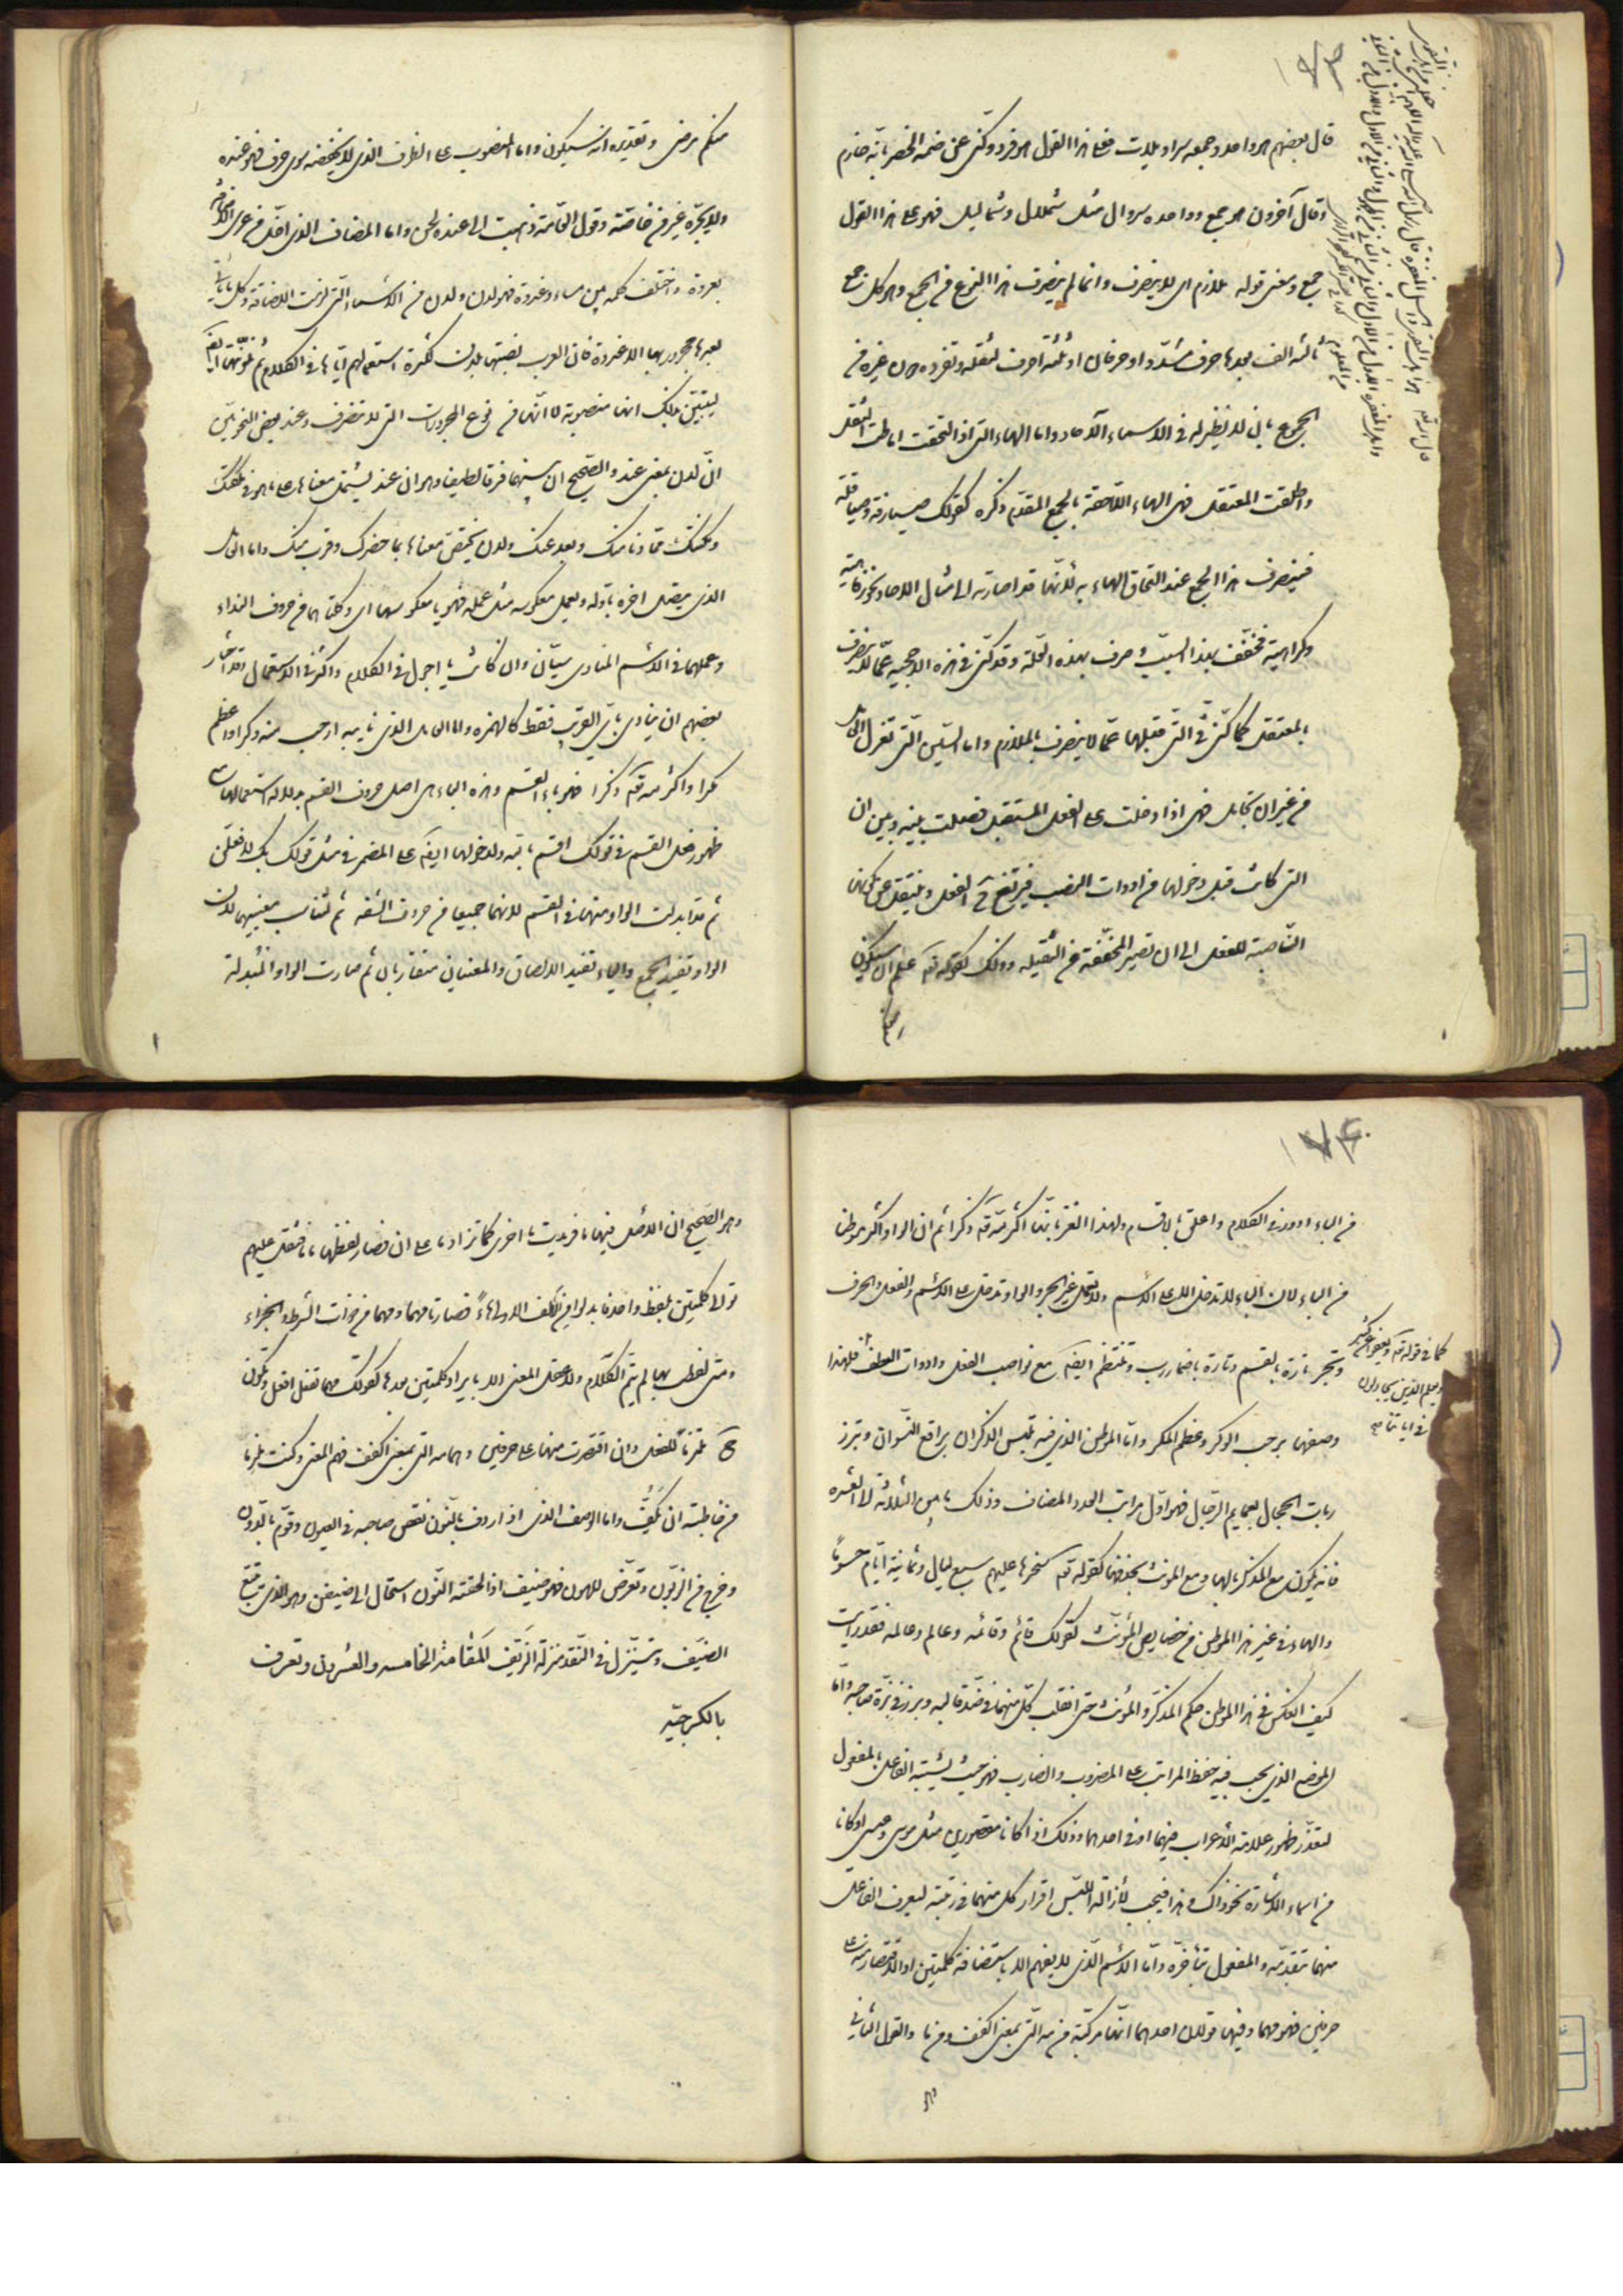 ۱۷۳
قال بعضهم هو واحد وجمعه سراويلات فعلى هذا القول هو فرد وكنى عن ضمه الخصر بانه حازم
وقال آخرون هو جمع وواحده سروال مثل شملال وشماليل فهو على هذا القول
جمع ومعنى قوله ملازم اى لا ينصرف وانما لم ينصرف هذا النوع من الجمع وهو كل جمع
ثالثه الف بعدها حرف مشدد او حرفان او ثلثة احرف لثقله وتفرده دون غيره من
الجموع بان لا نظير له فى الاسماء الآحاد واما الهاء التى اذا التحقت اماطت الثقل
واطلقت المعتقل فهى الهاء اللاحقة بالجمع المقدم ذكره كقولك صيارفة وصياقلة
فينصرف هذا الجمع عند التحاق الهاء به لانها قد اصارته الى امثال الاحاد نحو رفاهية
وكراهية فخفف بهذا السبب وصرف بهذه العلة وقد كنى فى هذه الاحجية عما لا ينصرف
بالمعتقل كما كنى فى التى قبلها عما لا ينصرف بالملازم واما السين التى تعزل العامل
من غير ان تجامل فهى اذا دخلت على الفعل المستقبل فصلت بينه وبين ان
التى كانت قبل دخولها من ادوات النصب فيرتفع ح الفعل وينتقل عن كونها
الناصبة للفعل الى ان تصير المخففة من الثقيلة وذلك كقوله تعه علم ان سيكون
منكم مرضى وتقديره انه سيكون واما المنصوب على الظرف الذى لا يخفضه سوى حرف فهو عنده
ولا يجره غير من خاصة وقول العامة ذهبت الى عنده لحن واما المضاف الذى اخل من عرى الاضافة
بعروة واختلف حكمه بين مساء وغدوة فهو لدن ولدن من الاسماء التى لازمت الاضافة وكل ما ياتى
بعدها مجرور بها الا غدوة فان العرب نصبتها بلدن لكثرة استعمالهم اياها فى الكلام ثم نونتها ايضا
ليتبين بذلك انها منصوبة لا انها من نوع المجرورات التى لا تنصرف وعند بعض النحويين
ان لدن بمعنى عند والصحيح ان بينهما فرقا لطيفا وهو ان عند يشتمل معناها على ما هو فى ملكك
ومكنتك مما دنا منك وبعد عنك ولدن يختص معناها بما حضرك وقرب منك واما العامل
الذى يتصل اخره باوله ويعمل معكوسه مثل عمله فهو يا معكوسها اى وكلتاهما من حروف النداء
وعملهما فى الاسم المنادى سيان وان كانت يا اجول فى الكلام واكثر فى الاستعمال وقد اختار
بعضهم ان ينادى باى القريب فقط كالهمزة واما العامل الذى نايبه ارحب منه وكرا واعظم
مكرا واكثر لله تعه ذكرا فهو باء القسم وهذه الباء هى اصل حروف القسم بدلالة استعمالها مع
ظهور فعل القسم فى قولك اقسم بالله ولدخولها ايضا على المضمر فى مثل قولك بك لافعلن
ثم قد ابدلت الواو منها فى القسم لانهما جميعا من حروف الشفة ثم لتناسب معنييهما لان
الواو تفيد الجمع والباء تفيد الالصاق والمعنيان متقاربان ثم صارت الواو المبدلة
۱۷۴
من الباء ادور فى الكلام واعلق بالاقسام ولهذا الغز بانها اكثر لله تعه ذكرا ثم ان الواو اكثر موطنا
من الباء لان الباء لا تدخل الا على الاسم ولا تعمل غير الجر والواو تدخل على الاسم والفعل والحرف
وتجر تارة بالقسم وتارة باضمار رب وتنتظم ايضا مع نواصب الفعل وادوات العطف فلهذا
كما فى قوله تعه ويعفو عن كثير
ويعلم الذين يجادلون
فى اياتنا
وصفها برحب الوكر وعظم المكر واما الموطن الذى فيه تلبس الذكران براقع النسوان وتبرز
ربات الحجال بعمايم الرجال فهو اول مراتب العدد المضاف وذلك ما بين الثلاثة الى العشرة
فانه يكون مع المذكر بالهاء ومع المؤنث بحذفها كقوله تعه سخرها عليهم سبع ليال وثمانية ايام حسوما
والهاء فى غير هذا الموطن من خصايص المؤنث كقولك قائم وقائمه وعالم وعالمه فقد رايت
كيف انعكس فى هذا الموطن حكم المذكر والمؤنث حتى انقلب كل منهما فى ضد قالبه وبرز فى بزة صاحبه واما
الموضع الذى يجب فيه حفظ المراتب على المضروب والضارب فهو حيث يشتبه الفاعل بالمفعول
لتعذر ظهور علامة الاعراب فيهما او فى احدهما وذلك اذا كانا مقصورين مثل موسى وعيسى او كانا
من اسماء الاشارة نحو ذاك وهذا فيجب لازالة اللبس اقرار كل منهما فى رتبته ليعرف الفاعل
منهما بتقدمه والمفعول بتاخره واما الاسم الذى لا يفهم الا باستضافة كلمتين او الاقتصار منه على
حرفين فهو مهما وفيها قولان احدهما انها مركبة من مه التى بمعنى اكفف ومن ما والقول الثانى
وهو الصحيح ان الاصل فيها ما فزيدت ما اخرى كما تزاد ما على ان فصار لفظها ما ما فثقل عليهم
توالى كلمتين بلفظ واحد فابدلوا من الالف الاولى هاء فصارتا مهما ومهما من ادوات الشرط والجزاء
ومتى لفظت بها لم يتم الكلام ولا عقل المعنى الا بايراد كلمتين بعدها كقولك مهما تفعل افعل وتكون
ح ملتزما للفعل وان اقتصرت منها على حرفين وهما مه التى بمعنى اكفف فهم المعنى وكنت ملزما
من خاطبته ان يكف واما الوصف الذى اذا اردف بالنون نقص صاحبه فى العيون وقوم بالدون
وخرج من الزبون وتعرض للهون فهو ضيف اذا لحقته النون استحال الى ضيفن وهو الذى يتبع
الضيف ويتنزل فى النقد منزلة الزيف المقامة الخامسه والعشرون وتعرف
بالكرجيه